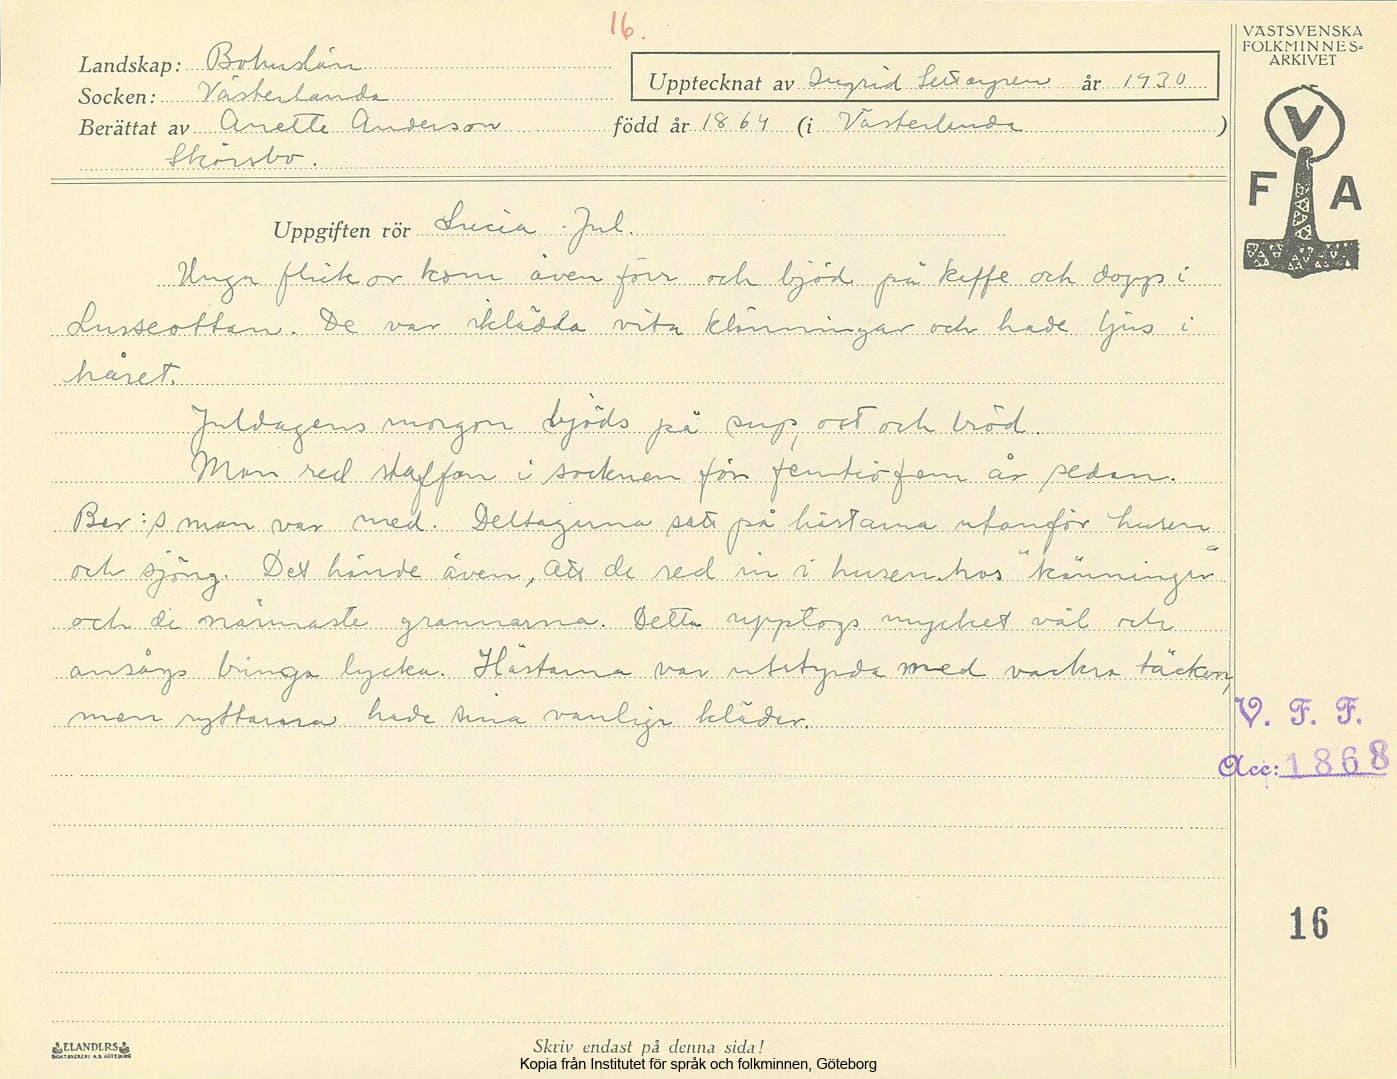 16.
VÄSTSVENSKA
FOLKMINNES=
ARKIVET
Landskap: Bohuslän
Upptecknat av Ingrid år 1930
Socken: Västerlanda
Berättat av Anette Anderson född år 1864 (i Västerlanda )
Skörsbo.
V
F A
Uppgiften rör Lucia. Jul.
Unga flickor kom även förr och bjöd på kaffe och dopp i
Lusseottan. De var iklädda vita klänningar och hade ljus i
håret.
Juldagens morgon bjöds på sup, ost och bröd.
Man red staffan i socknen för femtiofem år sedan.
Ber:s man var med. Deltagarna satt på hästarna utanför husen
och sjöng. Det hände även, att de red in i husen hos "känningar"
och de närmaste grannarna. Detta upptogs mycket väl och
ansågs bringa lycka. Hästarna var utstyrda med vackra täcken,
men ryttarna hade sina vanliga kläder.
V. F. F.
Acc: 1868
16
ELANDERS
BOKTRYCKERI A.B. GÖTEBORG
Skriv endast på denna sida!
Kopia från Institutet för språk och folkminnen, Göteborg